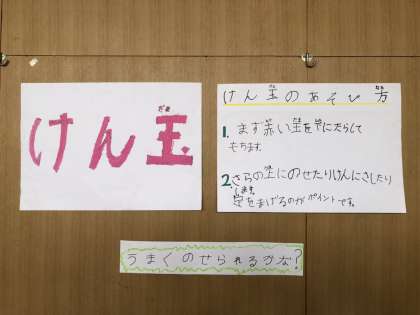 けん玉
だま
けん玉のあそび方
だま
かた
1. まず赤い玉を下にたらして
もちます。
2. さらの上にのせたりけんにさしたり
します。
をまげるのがポイントです。
うまくのせられるかな?